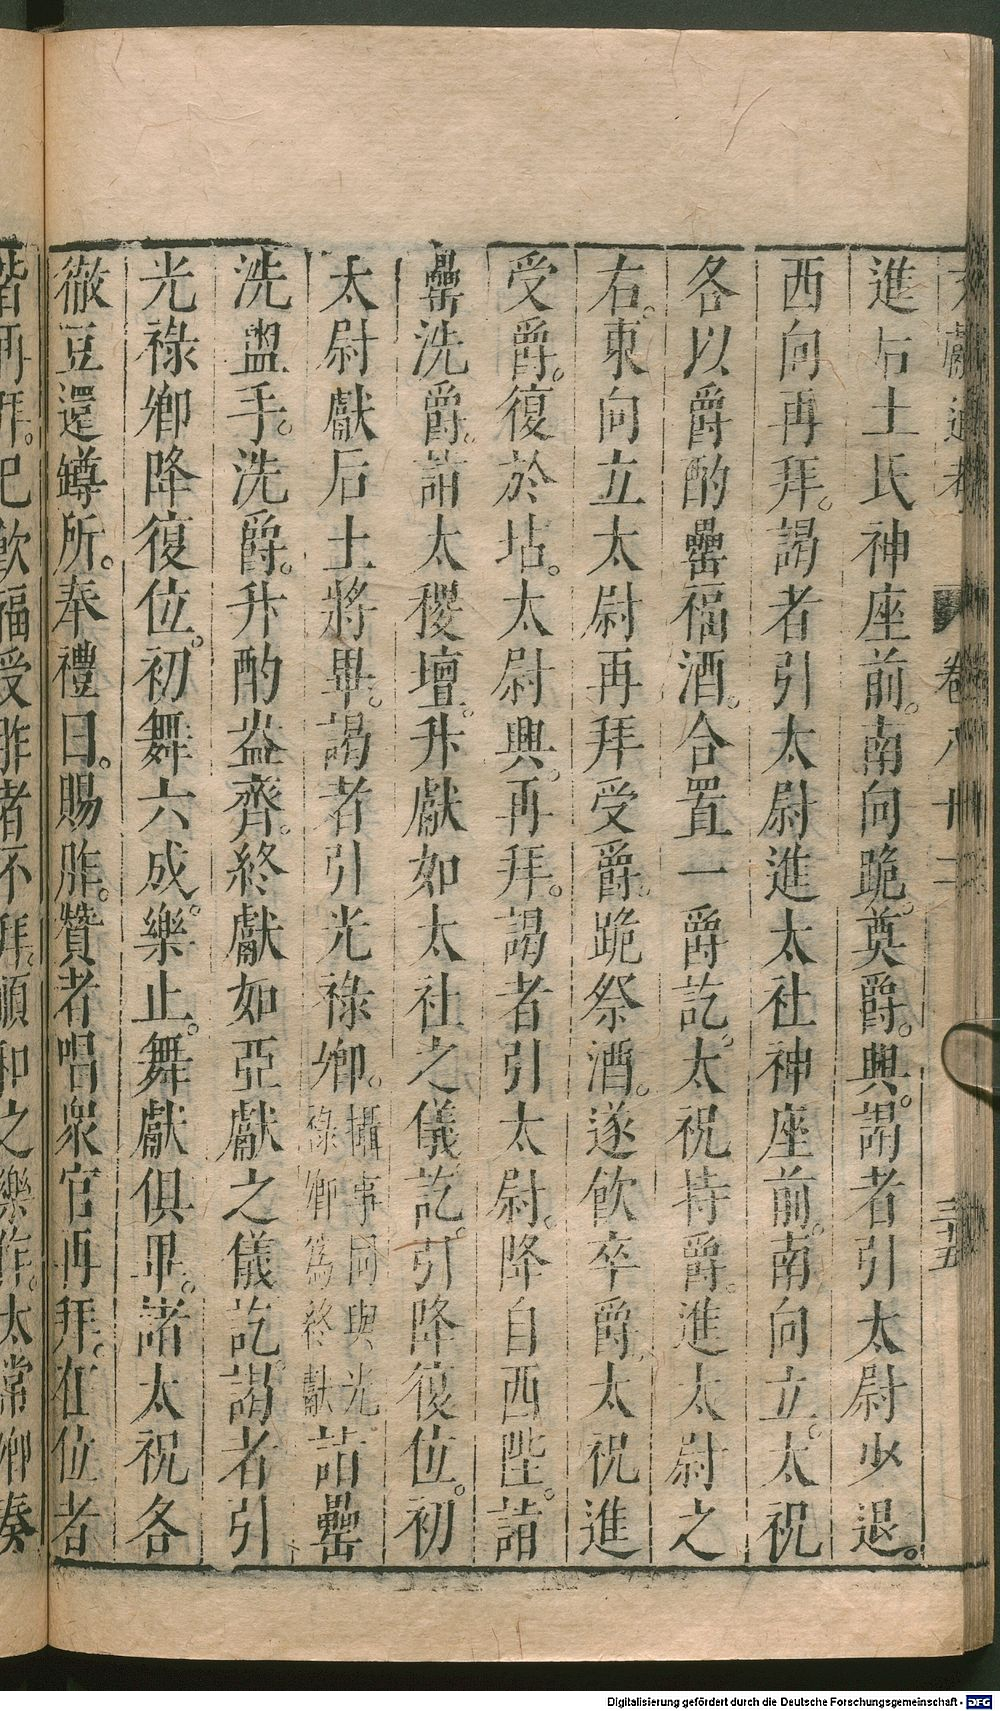 進后土氏神座前。南向跪。奠爵。興。謁者引太尉少退。
西向再拜。謁者引太尉進太社神座前。南向立。太祝
各以爵酌罍福酒。合置一爵訖。太祝持爵。進太尉之
右。東向立太尉再拜受爵。跪祭酒。遂飮卒爵。太祝進
受爵。復於坫。太尉興。再拜。謁者引太尉。降自西陛。詣
罍洗爵。詣太稷壇。升獻如太社之儀訖。引降復位。初
太尉獻后土將畢。謁者引光祿卿。攝事同與光祿卿為終獻詣罍
洗盥手。洗爵。升酌盎齊。終獻如亞獻之儀訖。謁者引
光祿卿降復位。初舞六成。樂止。舞獻俱畢。諸太祝各
徹豆還罇所。奉禮曰。賜胙。贊者唱衆官再拜。在位者
皆再拜。已飮福受胙者不拜。順和之樂作。太常卿奏
卷八十二
三十五
Digitalisierung gefördert durch die Deutsche Forschungsgemeinschaft - DFG